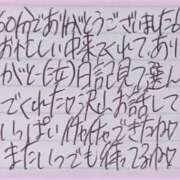 60分でありがとうございました
お忙しい中来てくれてあり
がと〜(笑)日記見て選ん
でくれた♡沢山お話して
いっぱいイチャイチャできたね♡
またいつでも待ってるね♡